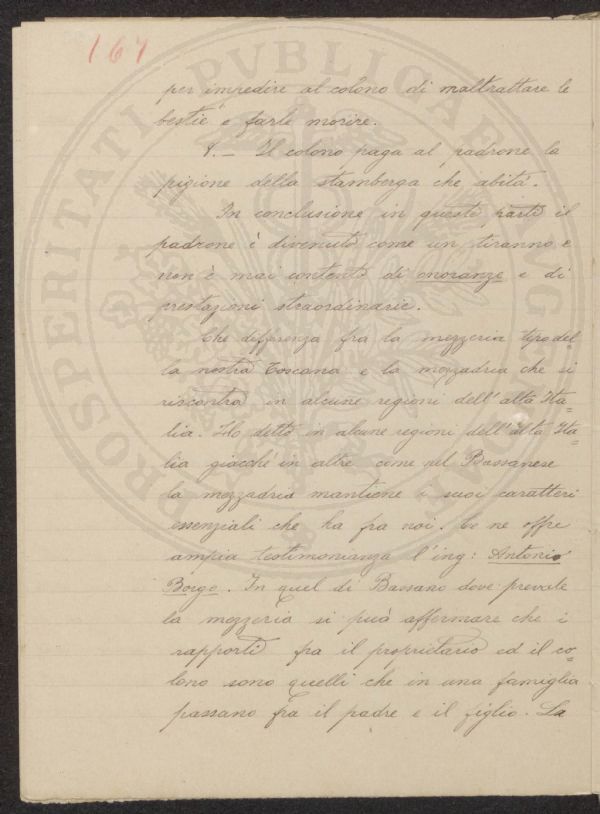 167
per impedire al colono di maltrattare le
bestie e farle morire.
8. — Il colono paga al padrone la
pigione della stamberga che abita.
In conclusione in queste parti il
padrone è divenuto come un tiranno e
non è mai contento di onoranze e di
prestazioni straordinarie.
Che differenza fra la mezzeria tipo del=
la nostra Toscana e la mezzadria che si
riscontra in alcune regioni dell'alta Ita=
lia. Ho detto in alcune regioni dell'alta Ita=
lia giacchè in altre come nel Bassanese
la mezzadria mantiene i suoi caratteri
essenziali che ha fra noi. Ce ne offre
ampia testimonianza l'ing: Antonio
Borgo. In quel di Bassano dove prevale
la mezzeria si può affermare che i
rapporti fra il proprietario ed il co=
lono sono quelli che in una famiglia
passano fra il padre e il figlio. La
PROSPERITATI PVBLICAE AVGENDAE